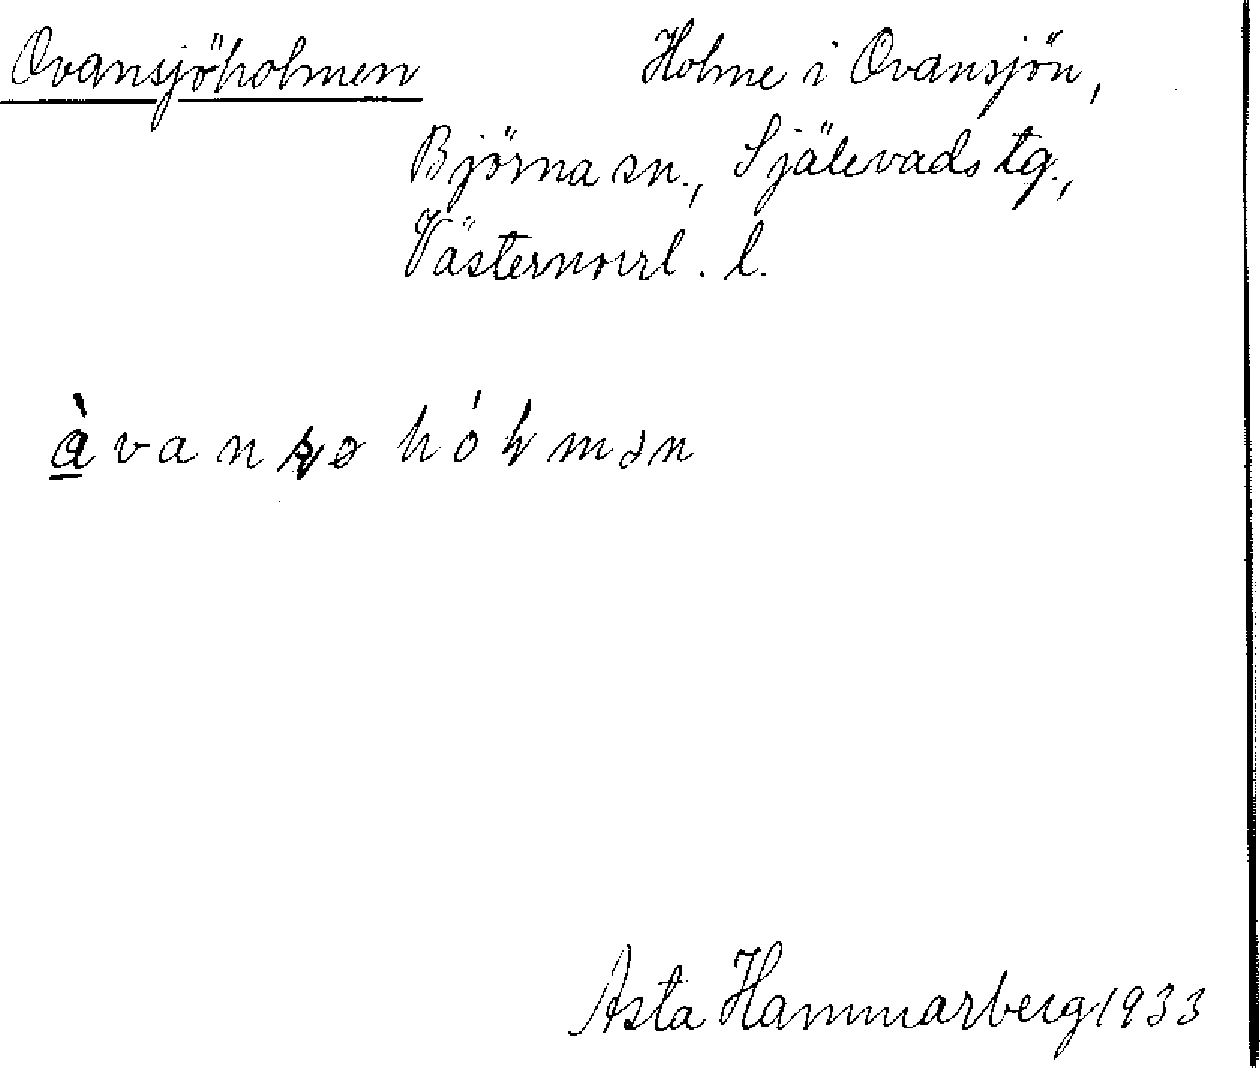 Ovansjöholmen Holme i Ovansjön,
Björna sn., Själevads tg.,
Västernorrl. l.
Asta Hammarberg 1933